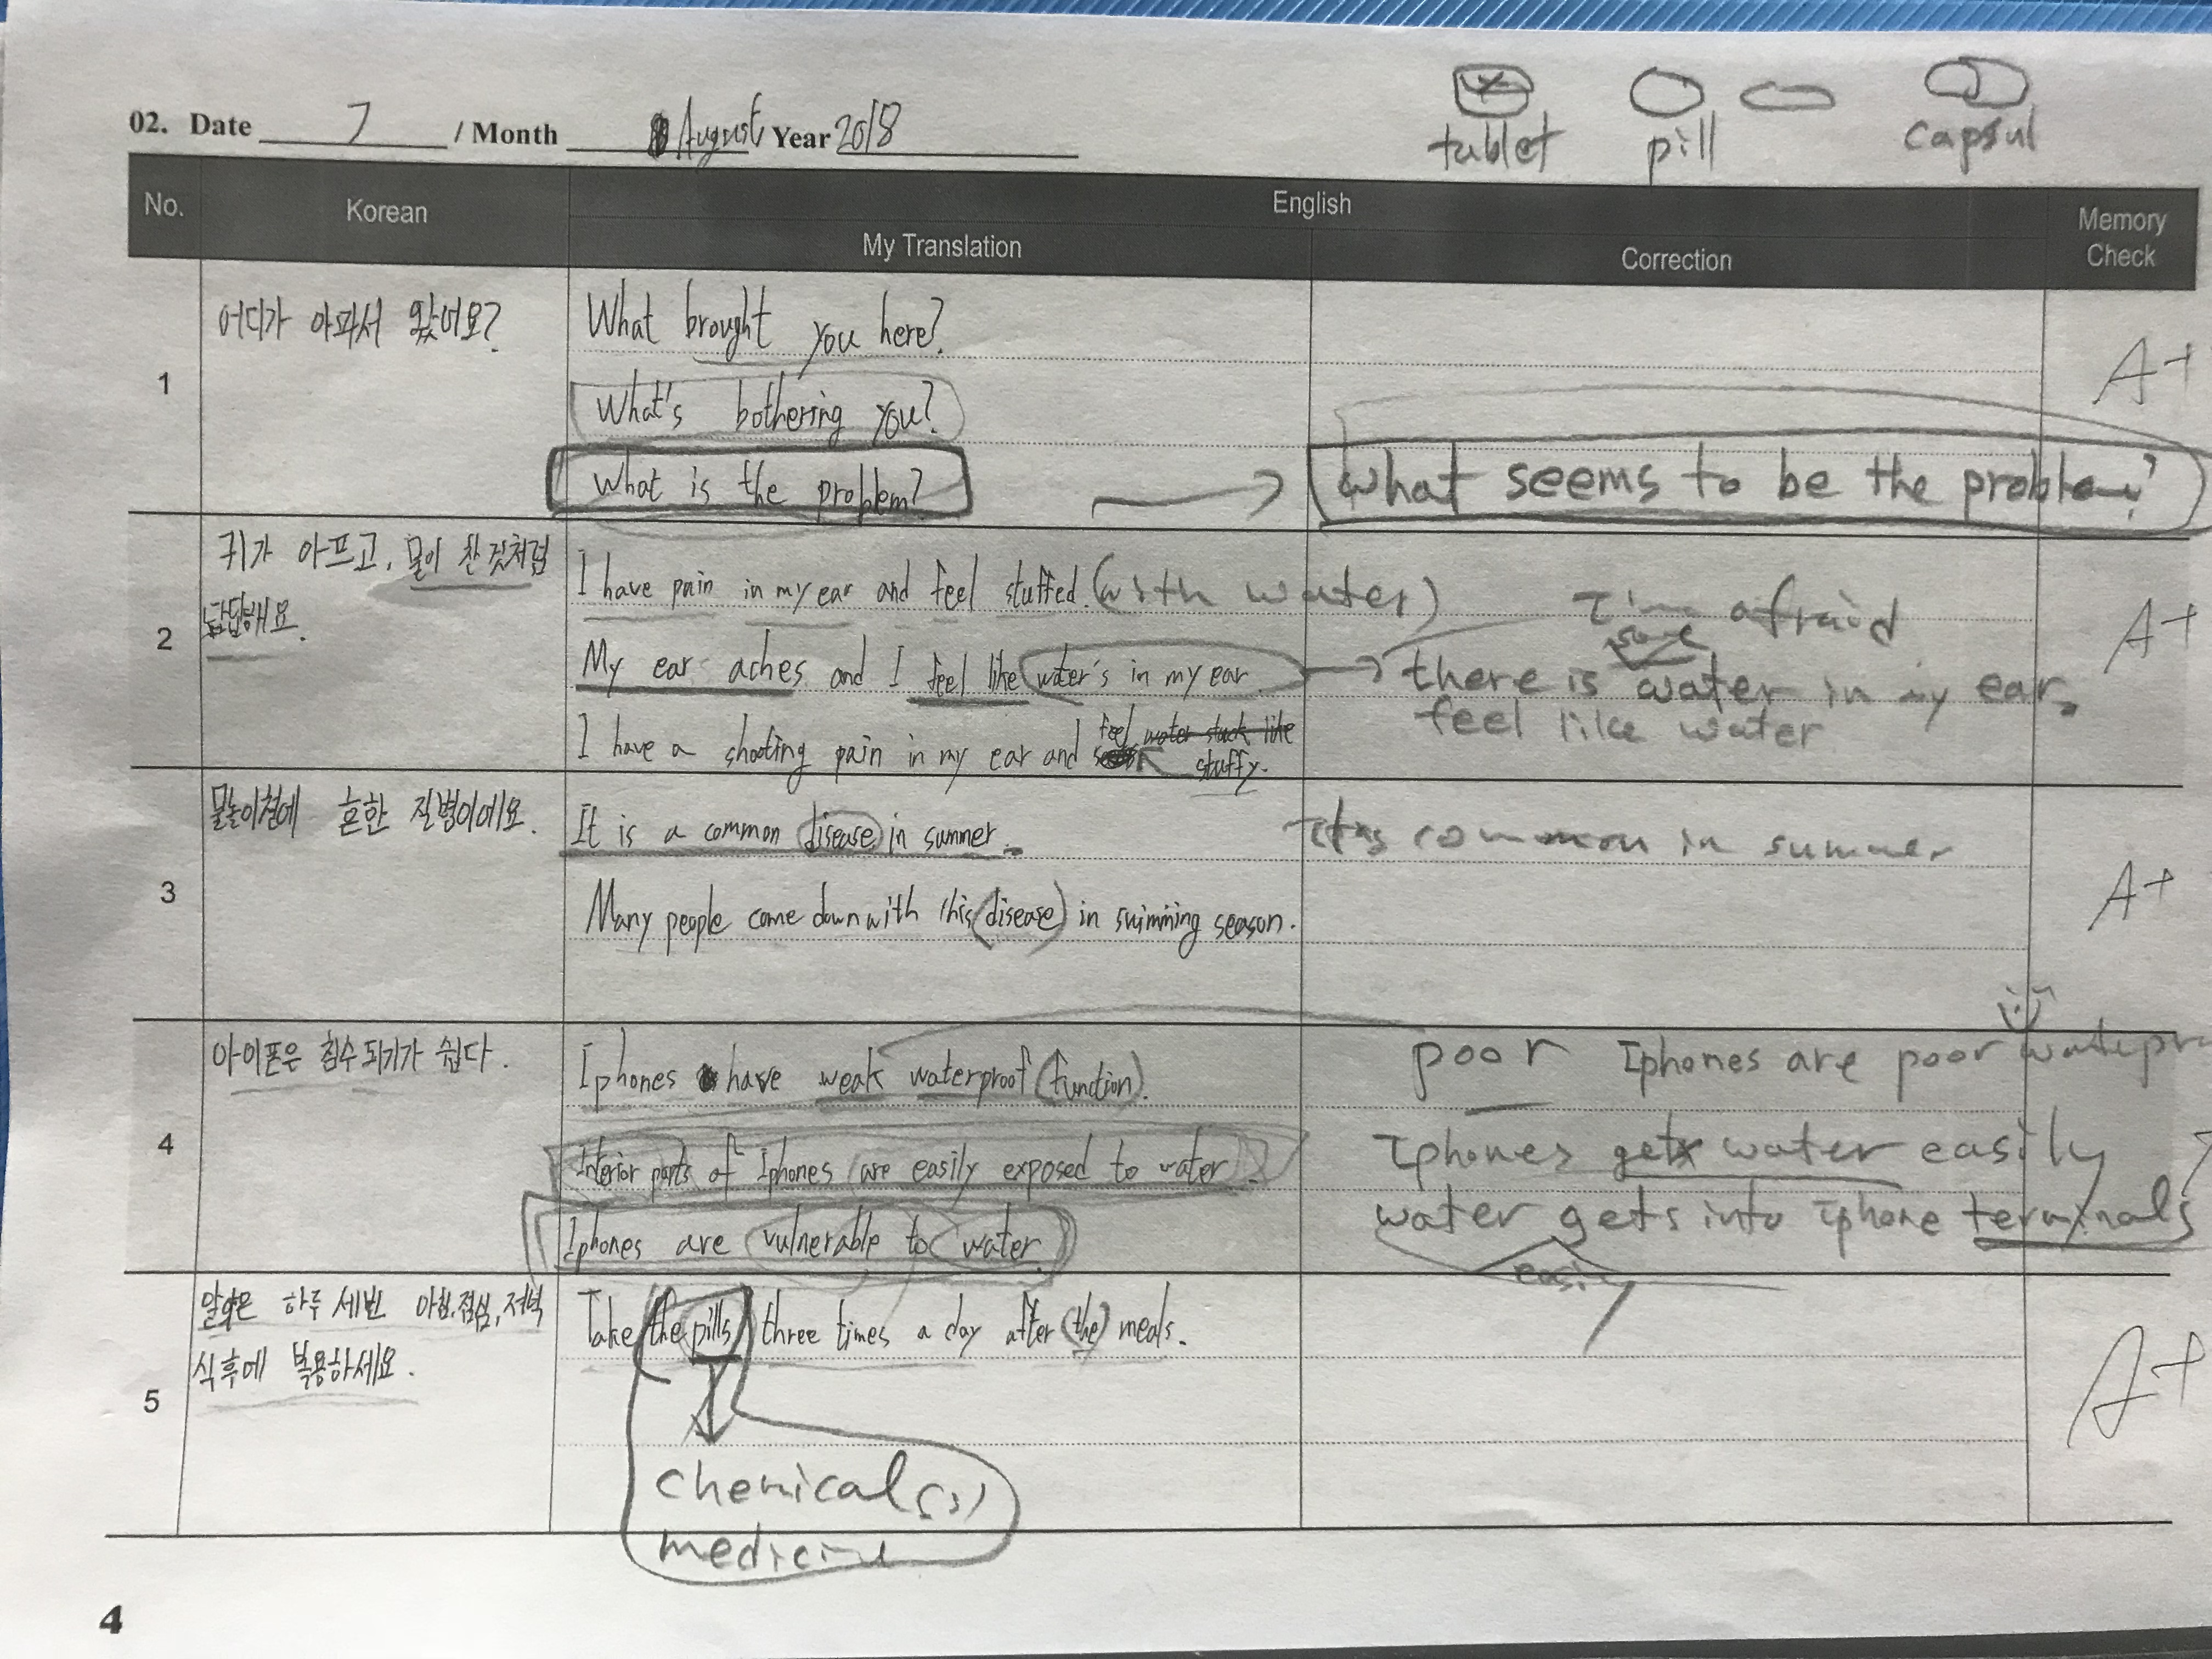 02. Date 7 / Month August Year 2018
tablet pill capsul
No. Korean English Memory Check
My Translation Correction
1
어디가 아파서 왔어요?
What brought you here?
What's bothering you?
What is the problem?
What seems to be the problem?
A+
2
귀가 아프고, 물이 찬 것처럼
답답해요.
I have pain in my ear and feel stuffed. (with water)
My ear aches and I feel like water's in my ear.
I have a shooting pain in my ear and feel water stuck like
stuffy.
I'm afraid
some
there is water in my ear.
feel like water
A+
3
물놀이철에 흔한 질병이에요.
It is a common disease in summer.
Many people come down with this (disease) in swimming season.
common in summer
A+
4
아이폰은 침수되기가 쉽다.
Iphones have weak waterproof (function).
Interior parts of Iphones are easily exposed to water.
Iphones are vulnerable to water.
poor Iphones are poor
Iphones get water easily
water gets into iphone terminals
easily
5
알약은 하루 세번 아침,점심,저녁
식후에 복용하세요.
Take the pills three times a day after (the) meals.
chemical(s)
medicine
A+
4